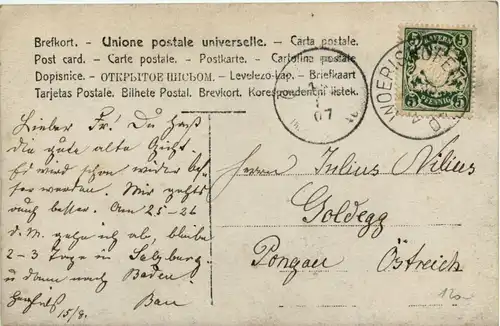 Brefkort. - Unione postale universelle. - Carta postale.
Post card. - Carte postale. - Postkarte. - Cartolina postale
Dopisnice. - ОТКРЫТОЕ ПИСЬМО. - Levelezo-Lap. - Briefkaart
Tarjetas Postale. Bilhete Postal. Brevkort. Korespondencni listek.
BAYERN
5 5
PFENNIG
07
Lieber Fr! Du hast
die gute alte Gicht.
Es wird schon wieder bes-
ser werden. Mir gehts
auch besser. Am 25-26
d. M. gehe ich als bleibe
2-3 Tage in Salzburg
u dann nach Baden.
Bau
15/8.
Herrn Julius Nilius
Goldegg
Pongau Östreich